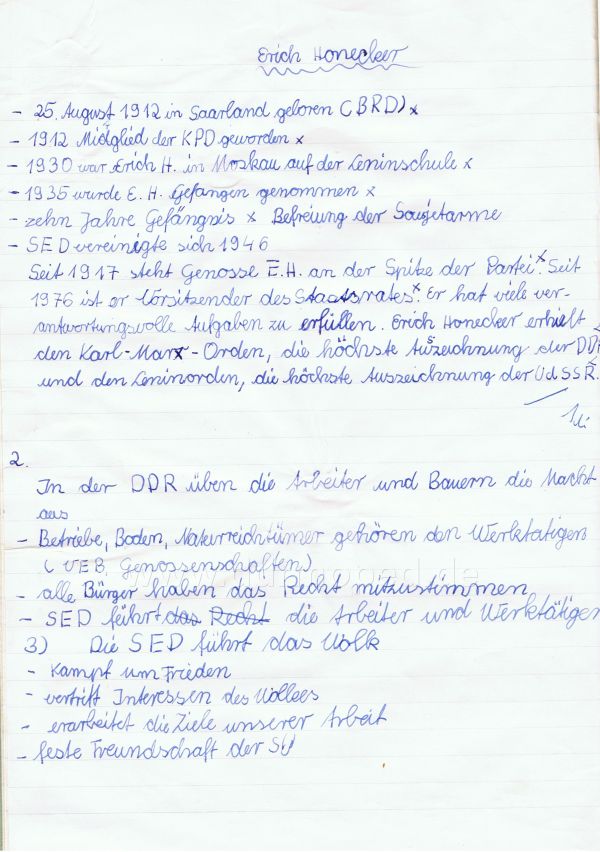 Erich Honecker
- 25. August 1912 in Saarland geboren (BRD) x
- 1912 Midglied der KPD geworden x
- 1930 war Erich H. in Moskau auf der Leninschule x
- 1935 wurde E. H. Gefangen genommen x
- zehn Jahre Gefängnis x Befreiung der Sowjetarme
- SED vereinigte sich 1946
Seit 1917 steht Genosse E.H. an der Spitze der Partei.x Seit
1976 ist er Vorsitzender des Staatsrates.x Er hat viele ver-
antwortungsvolle Aufgaben zu erfüllen. Erich Honecker erhielt
den Karl-Marx-Orden, die höchste Auszeichnung der DDR
und den Leninorden, die höchste Auszeichnung der UdSSR.
2.
In der DDR üben die Arbeiter und Bauern die Macht
aus
- Betriebe, Boden, Naturreichtümer gehören den Werktätigen
(VEB, Genossenschaften)
- alle Bürger haben das Recht mitzustimmen
- SED führt das Recht die Arbeiter und Werktätigen
3) Die SED führt das Volk
- Kampf um Frieden
- vertritt Interessen des Volkes
- erarbeitet die Ziele unserer Arbeit
- feste Freundschaft der SU